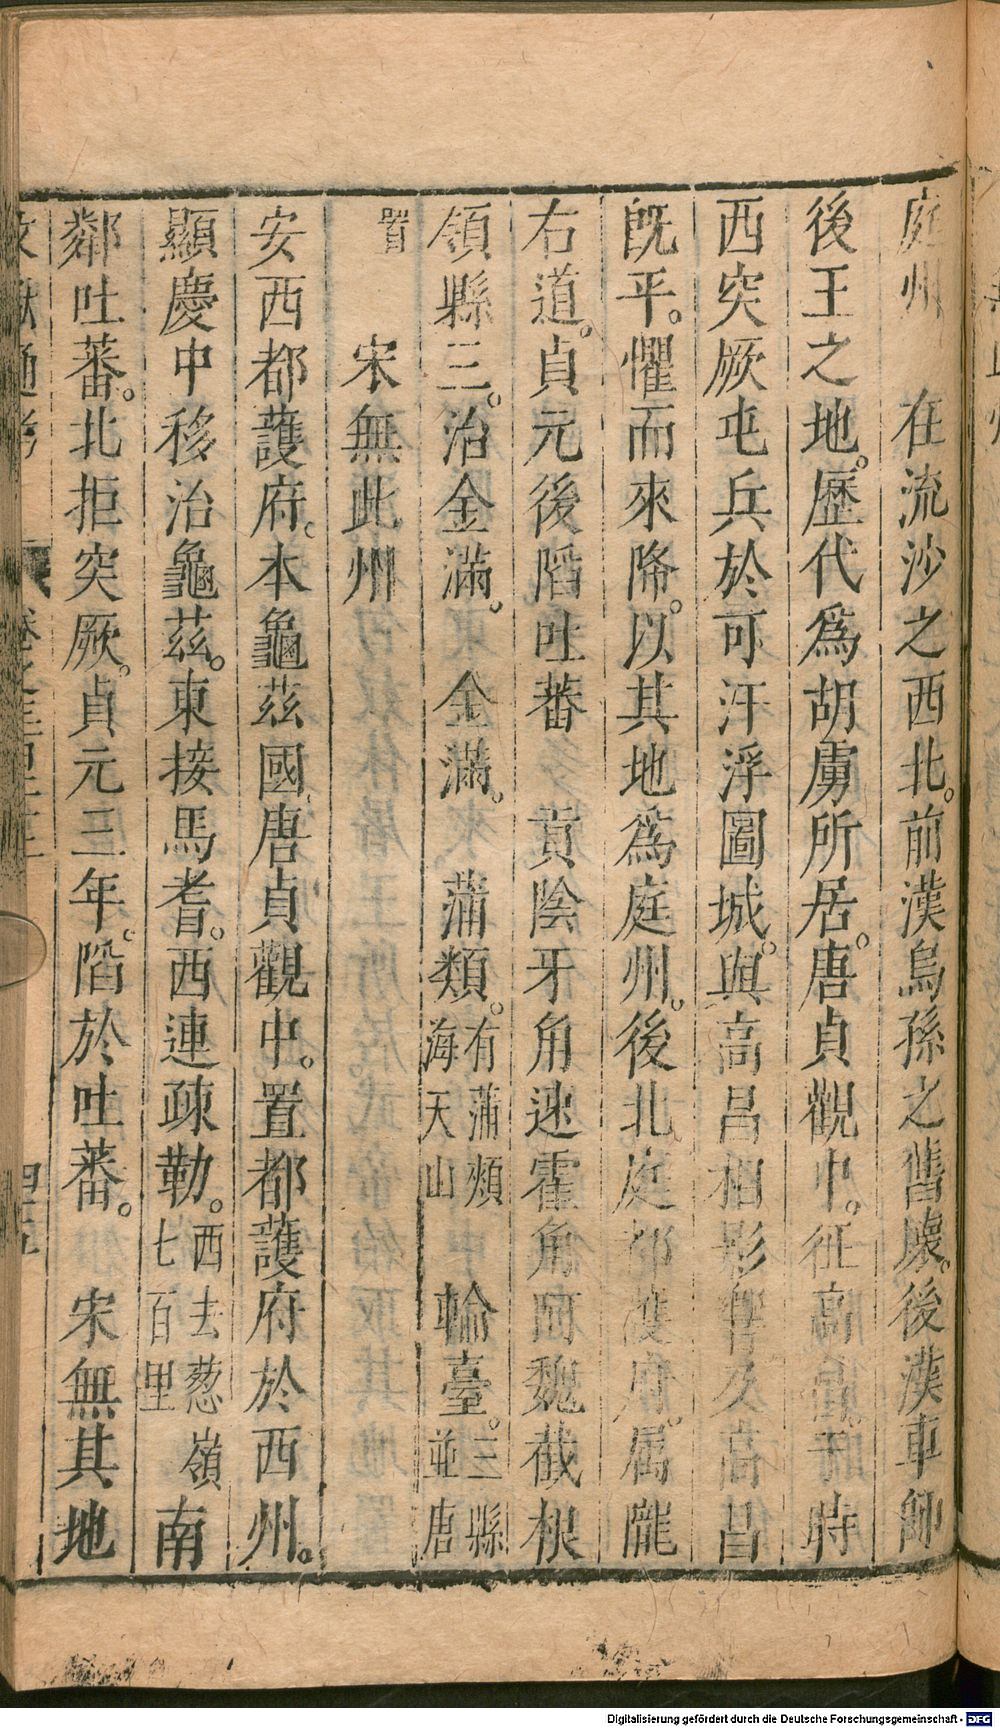 庭州　在流沙之西北。前漢烏孫之舊壤。後漢車師
後王之地。歷代爲胡虜所居。唐貞觀中。征高昌。于時
西突厥屯兵於可汗浮圖城。與高昌相影響。及高昌
旣平。懼而來降。以其地爲庭州。後北庭都護府。屬隴
右道。貞元後陷吐蕃　貢陰牙角速霍角阿魏截根
領縣三。治金滿。　金滿。　蒲類。有蒲類海天山　輪臺。三縣並唐
置
宋無此州
安西都護府。本龜茲國。唐貞觀中。置都護府於西州。
顯慶中移治龜茲。東接馬耆。西連疎勒。西去葱嶺七百里南
鄰吐蕃。北拒突厥。貞元三年。陷於吐蕃。　宋無其地
文獻通考
四五
Digitalisierung gefördert durch die Deutsche Forschungsgemeinschaft - DFG